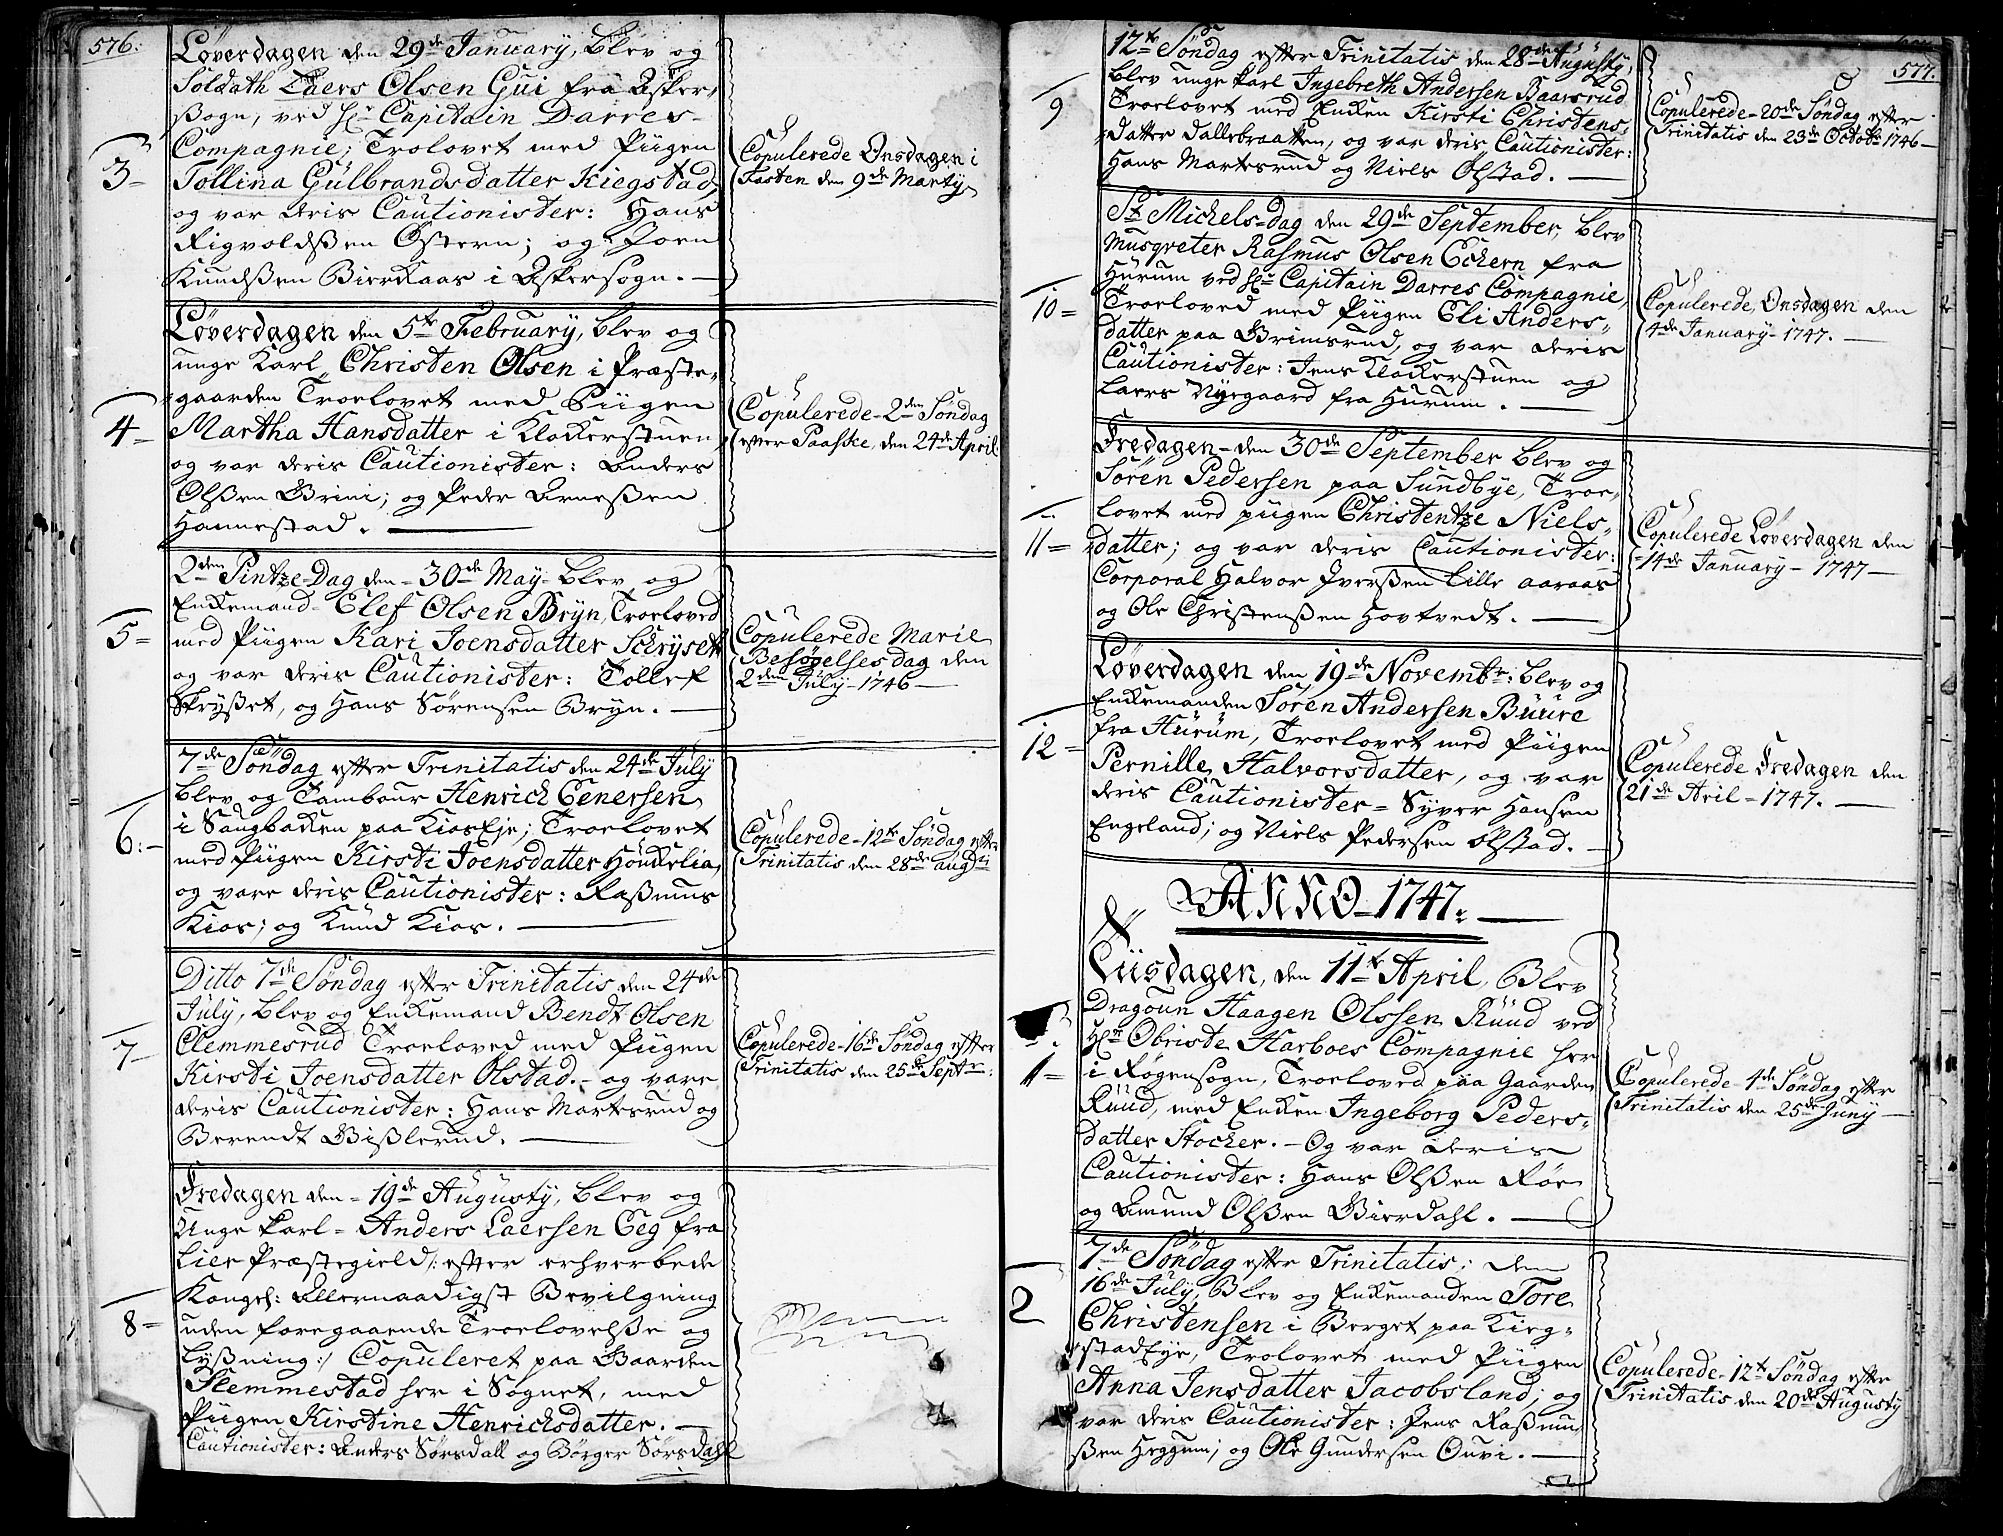 576.
Løverdagen den 29de January, blev og
Soldath Laers Olsen Gui fra Asker-
sogn, ved Hr Capitain Darres
Compagnie; Trolovet med Piigen
3 Tollina Gulbrandsdatter Kiegstad,
og var deris Cautionister: Hans
Rigvoldsen Ostern; og Joen
Knudsen Bierkaas i Askersogn.
Copulerede Onsdagen i
Fasten den 9de Marty
Løverdagen den 5te February, blev og
unge Karl Christen Olsen i Præste-
gaarden Troelovet med Piigen
4 Martha Hansdatter i Klokerstuen,
og var deris Cautionister: Anders
Olsen Grini; og Peder Arnesen
Hannestad.
Copulerede 2den Søndag
efter Paaske, den 24de April
2den Pintze-Dag den 30de May blev og
Enkemand Elef Olsen Bryn, Troeloved
5 med Piigen Kari Joensdatter Schryset
og var deris Cautionister: Tollef
Skrysset, og Hans Sørensen Bryn.
Copulerede Marie
Besøgelses dag den
2den July 1746
7de Søndag efter Trinitatis den 24de July
blev og Tambour Henrich Eenersen
i Saugbakken paa Kios Eje; Troelovet
6: med Piigen Kirsti Joensdatter Hønkelia,
og vare deris Cautionister: Rasmus
Kios; og Knud Kios.
Copulerede 12te Søndag efter
Trinitatis den 28de augti
Ditto 7de Søndag efter Trinitatis den 24de
July, blev og Enkemand Bendt Olsen
Clemmesrud Troeloved med Piigen
7 Kirsti Joensdatter Olstad. og vare
deris Cautionister: Hans Martesrud og
Berendt Gislerud.
Copulerede 16de Søndag efter
Trinitatis den 25de Septr:
Fredagen den 19de Augusty, blev og
Unge Karl Anders Laersen Eeg fra
Lier Præstegield /: efter erhverbede
Kongel: Allernaadigst Bevilgning
8 uden foregaaende Troelovelse og
Lysning :/ Copuleret paa Gaarden
Slemmestad her i Sognet, med
Piigen Kirstine Henrichsdatter.
Cautionister: Anders Sørsdall og Børger Sørsdahl
577.
12te Søndag efter Trinitatis den 28de Augusty,
blev unge Karl Ingebreth Andersen Baarsrud
9 Troelovet med Enken Kirsti Christens-
datter Dallebraatten, og var deris Cautionister:
Hans Martesrud og Niels Olstad.
Copulerede 20de Søndag efter
Trinitatis den 23de Octobr 1746
St Michels-Dag den 29de September, blev
Musqveter Rasmus Olsen Eckern fra
Hurum ved Hr Capitain Darres Compagnie,
10 Troeloved med Piigen Eli Anders-
datter paa Grimsrud, og var deris
Cautionister: Jens Klokerstuen og
Laers Nyegaard fra Hurum.
Copulerede, Onsdagen den
4de January 1747.
Fredagen den 30de September blev og
Søren Pedersen paa Sundbye, Troe-
lovet med piigen Christentze Niels-
11 datter; og var deris Cautionister:
Corporal Halvor Iversen Lille aaraas
og Ole Christensen Hovtvedt.
Copulerede Løverdagen den
14de January 1747
Løverdagen den 19de Novembr: blev og
Enkemanden Søren Andersen Buure
fra Hurum, Troelovet med Piigen
12 Pernille Halvorsdatter, og var
deris Cautionister Syver Hansen
Engeland; og Niels Pedersen Olstad.
Copulerede Fredagen den
21de Aril 1747.
ANNO 1747.
Tiisdagen, den 11te April, Blev
Dragoun Haagen Olssen Ruud ved
Hr Obriste Harboes Compagnie her
1 i Røgensogn, Troeloved paa Gaarden
Ruud, med Enken Ingeborg Peders-
datter Stocker. Og var deris
Cautionister: Hans Olsen Røe
og Amund Olsen Gierdahl.
Copulerede 4de Søndag efter
Trinitatis den 25de Juny
7de Søndag efter Trinitatis, den
16de July, Blev og Enkemanden Tore
2 Christensen i Berget paa Kieg-
stad Eje, Trolovet med Piigen
Anna Jensdatter Jacobsland; og
var deris Cautionister: Jens Rasmus-
sen Heggum; og Ole Gundersen Ouvi.
Copulerede 12te Søndag efter
Trinitatis den 20de Augusty